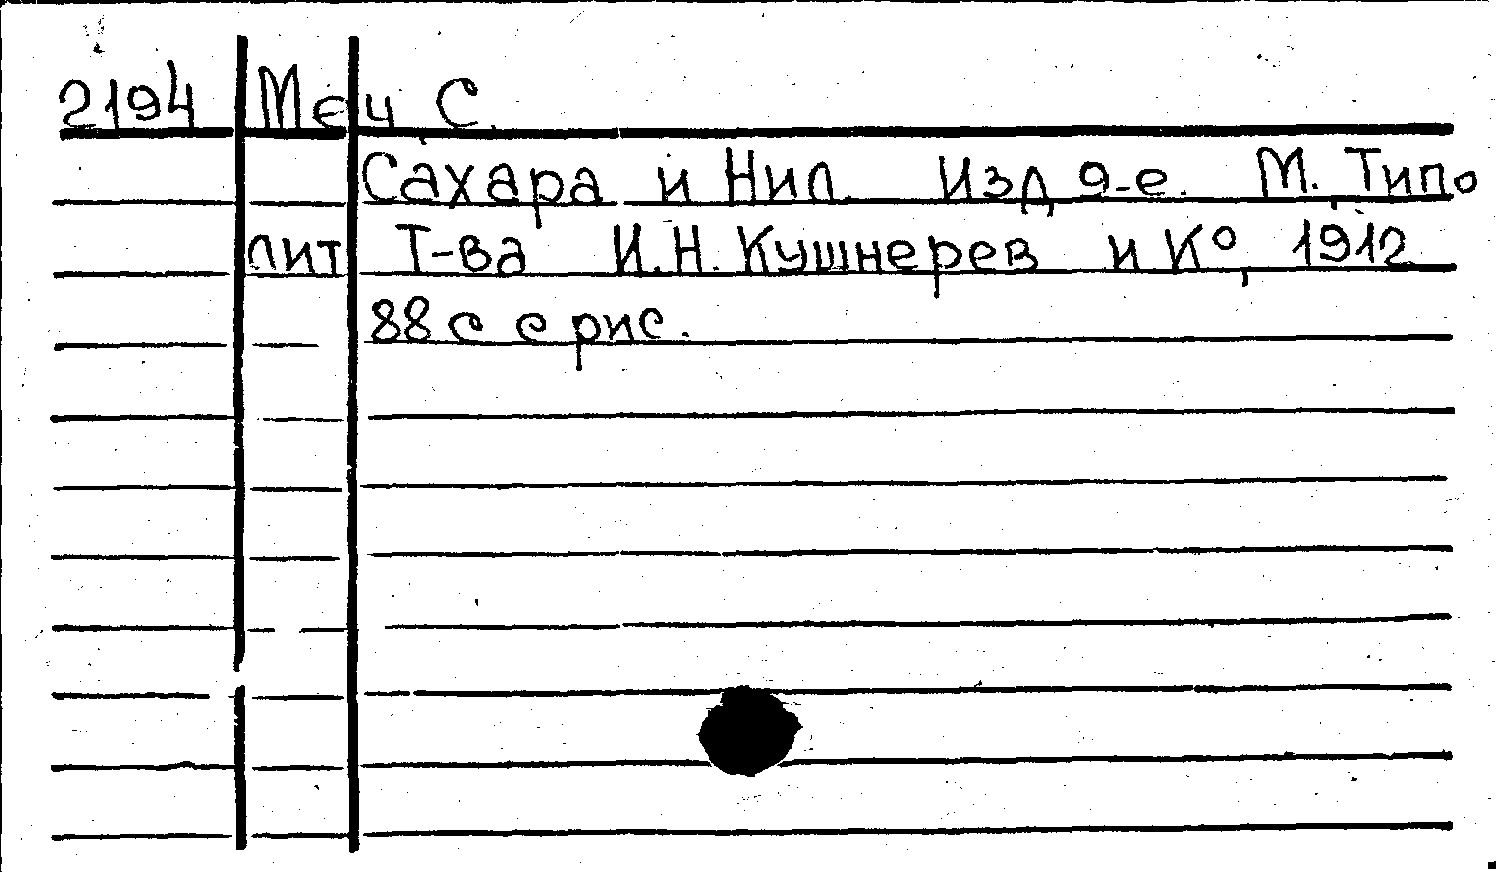 2194 Меч С.
Сахара и Нил. Изд 9-е. М. Типо
лит Т-ва И.Н. Кушнерев и К°, 1912
88 с с рис.